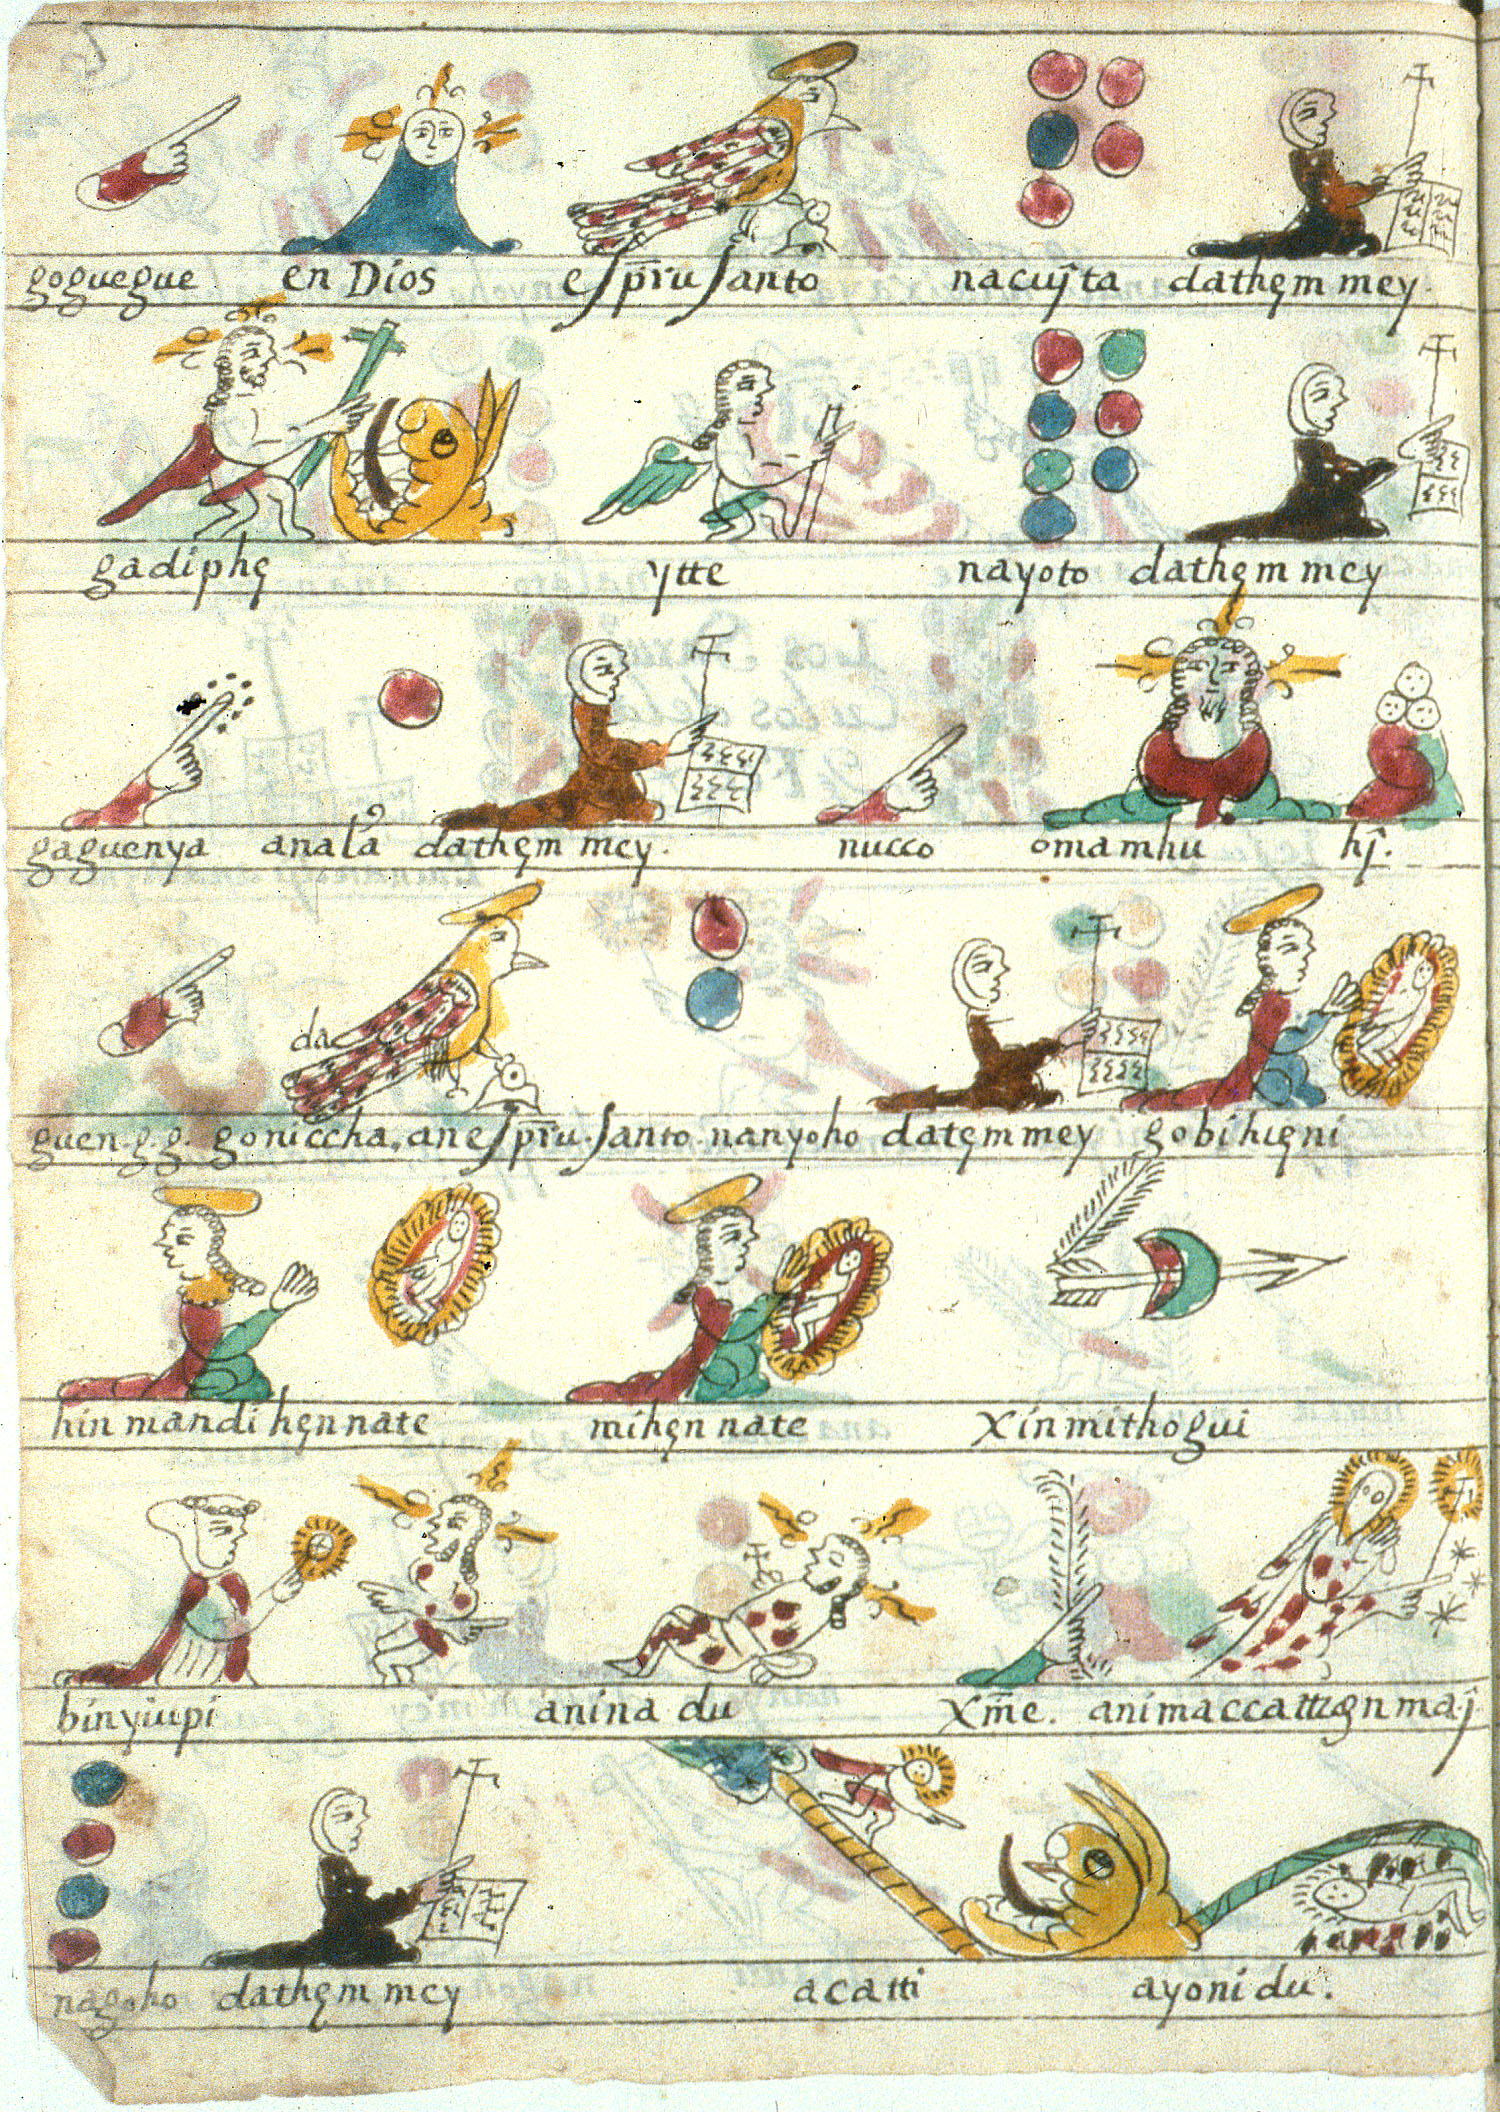 goguegue en Dios espr̃u santo nacuȷ̃ta dathęm mey.
gadiphę ytte nayoto dathęm mey
gaguenya anala dathęm mey. nucco omamhu hȷ̃.
da
guen.g.g. goniccha, an espr̃u. santo. nanyoho datęmmey gobihuęni
hin mandi hęnnate mihęn nate xinmithogui
binyiupi anina du Xm̃e.
nagoho dathęm mey acatti ayoni du.